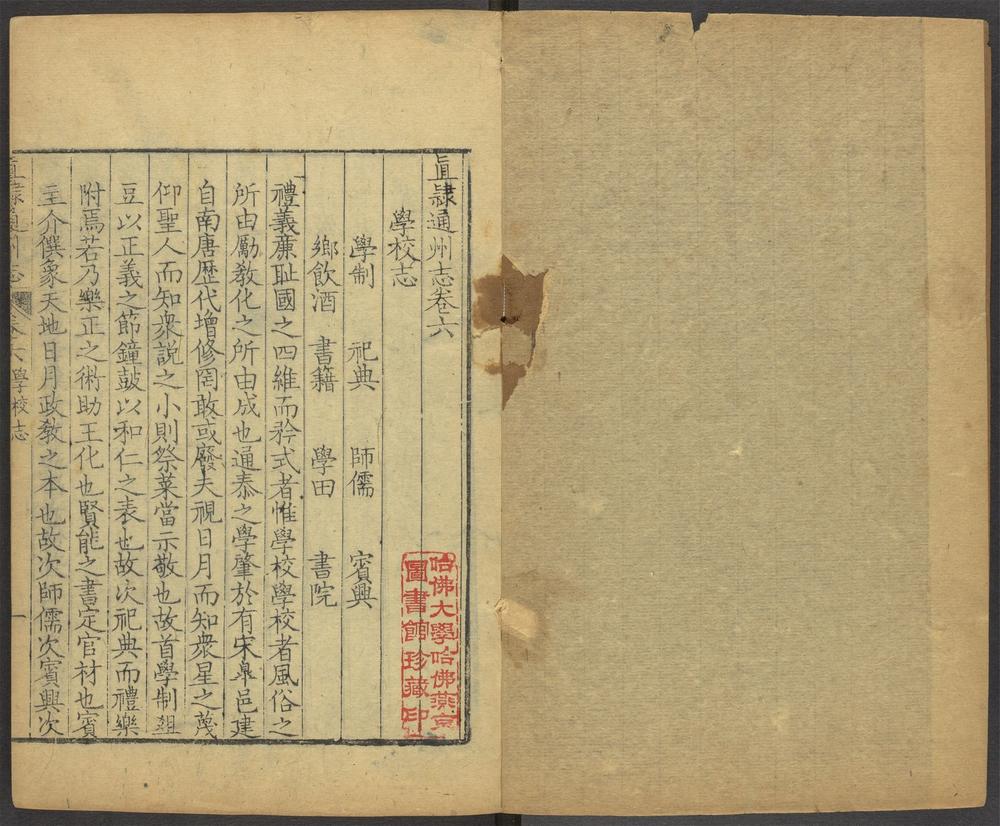 直隷通州志卷六
學校志
學制　祀典　師儒　賓興
鄉飲酒　書籍　學田　書院
禮義亷耻國之四維而矜式者惟學校學校者風俗之
所由勵敎化之所由成也通泰之學肇於有宋臯邑建
自南唐歴代增修罔敢或廢夫視日月而知衆星之蔑
仰聖人而知衆說之小則祭菜當示敬也故首學制俎
豆以正義之節鐘鼓以和仁之表也故次祀典而禮樂
附焉若乃樂正之術助王化也賢能之書定官材也賓
主介僎象天地日月政敎之本也故次師儒次賓興次
直隷通州志　卷六學校志　一
哈佛大學哈佛燕京
圖書館珍藏印